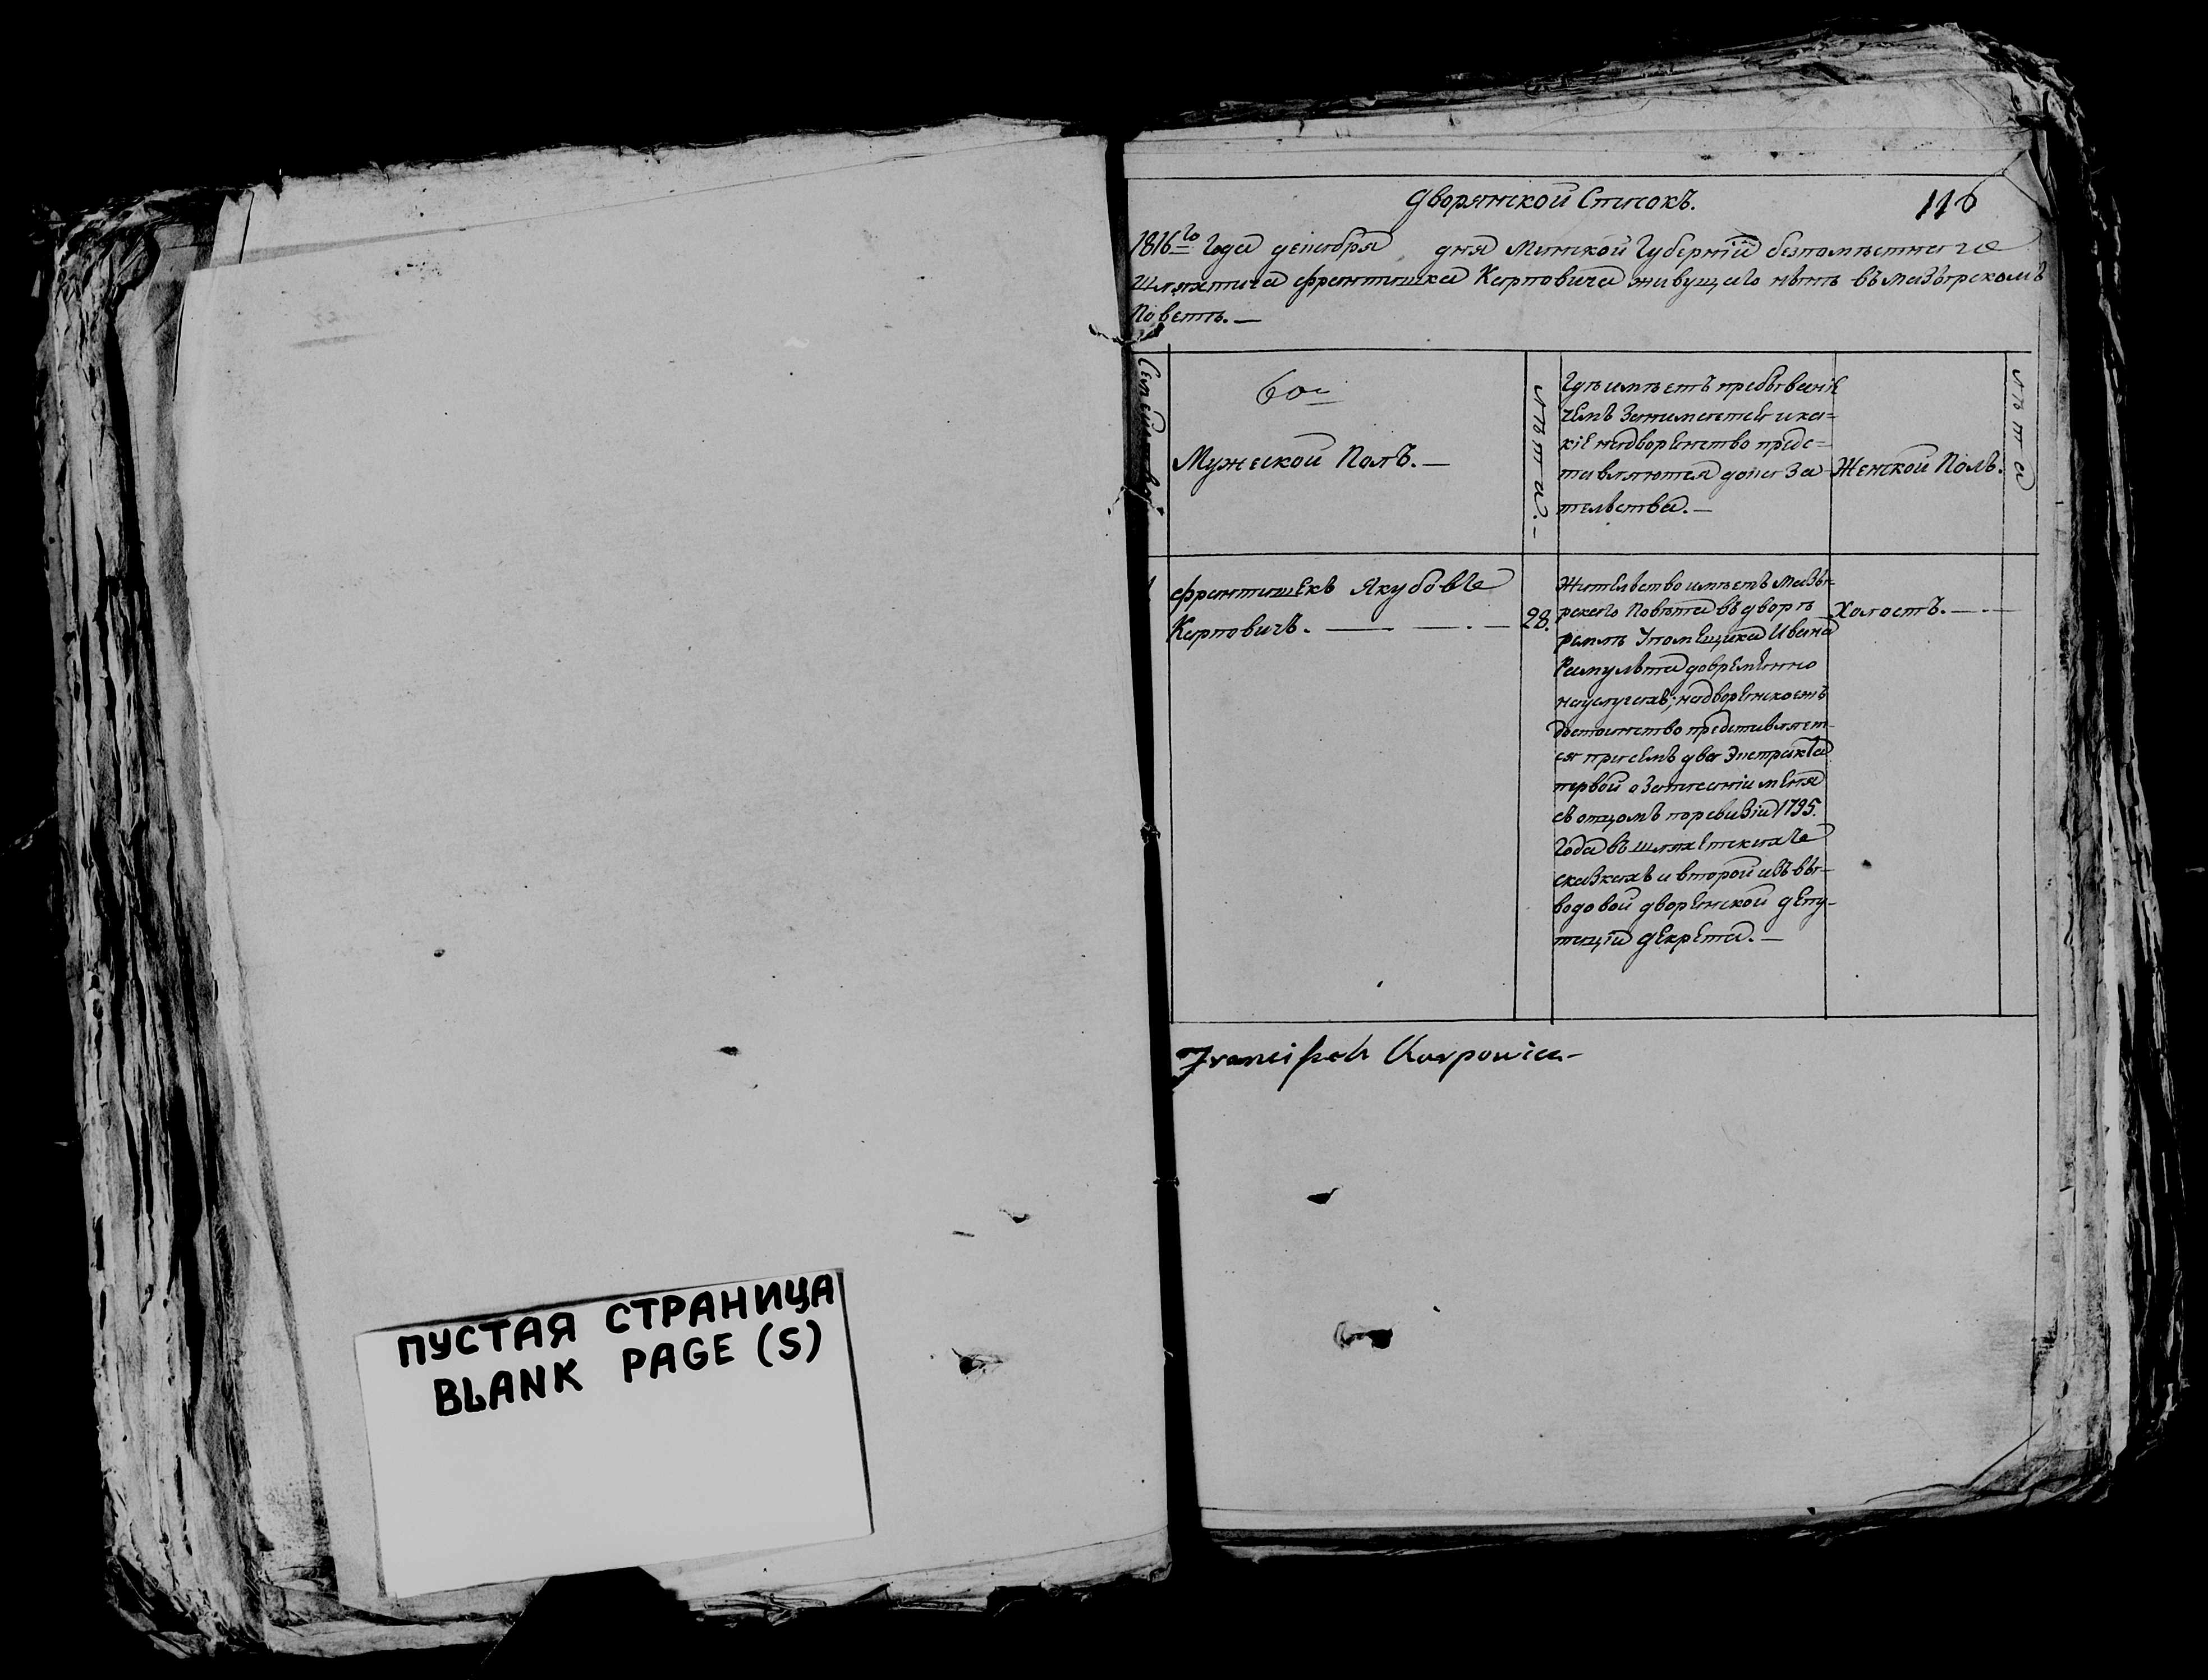 Дворянской Списокъ.
116
1816го Года декабря дня Минской Губерніи безпоместнаго
Шляхтича Франтишка Карповича живущаго нынѣ въ Мазырскомъ
Поветѣ. —
Мужеской Полъ. —
Лѣта. —
Гдѣ имѣетъ пребываніе
чемъ Занимается и ка=
кіе надворенство предс=
тавляются доказа
тельства. —
Женской Полъ.
Лѣта
1
Франтишекъ Якубовъ
Карповичъ. —
28.
Жителство имѣетъ Мазы-
рского Повѣта въ дворѣ
Упомещика Ивана
довременно
науслугахъ; надворенскоежъ
достоинство представляет-
ся присемъ два Экстракта
первой о Записаніи меня
съ отцомъ поревизіи 1795.
Года въ шляхетскихъ
сказкахъ и второй изъ вы-
водовой дворенской депу-
таціи декрета. —
Холостъ. —
Franciszek Karpowicz
ПУСТАЯ СТРАНИЦА
BLANK PAGE (S)